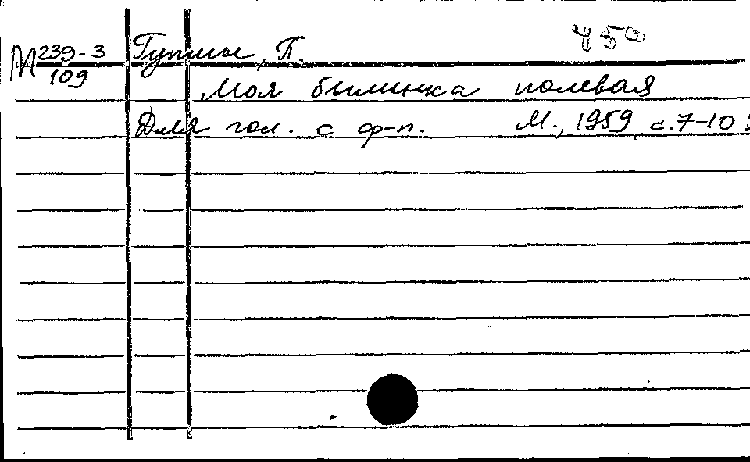 450
М 239-3
109
П.
Моя былинка полевая
Для гол. с ф-п. М., 1959, с. 7-10